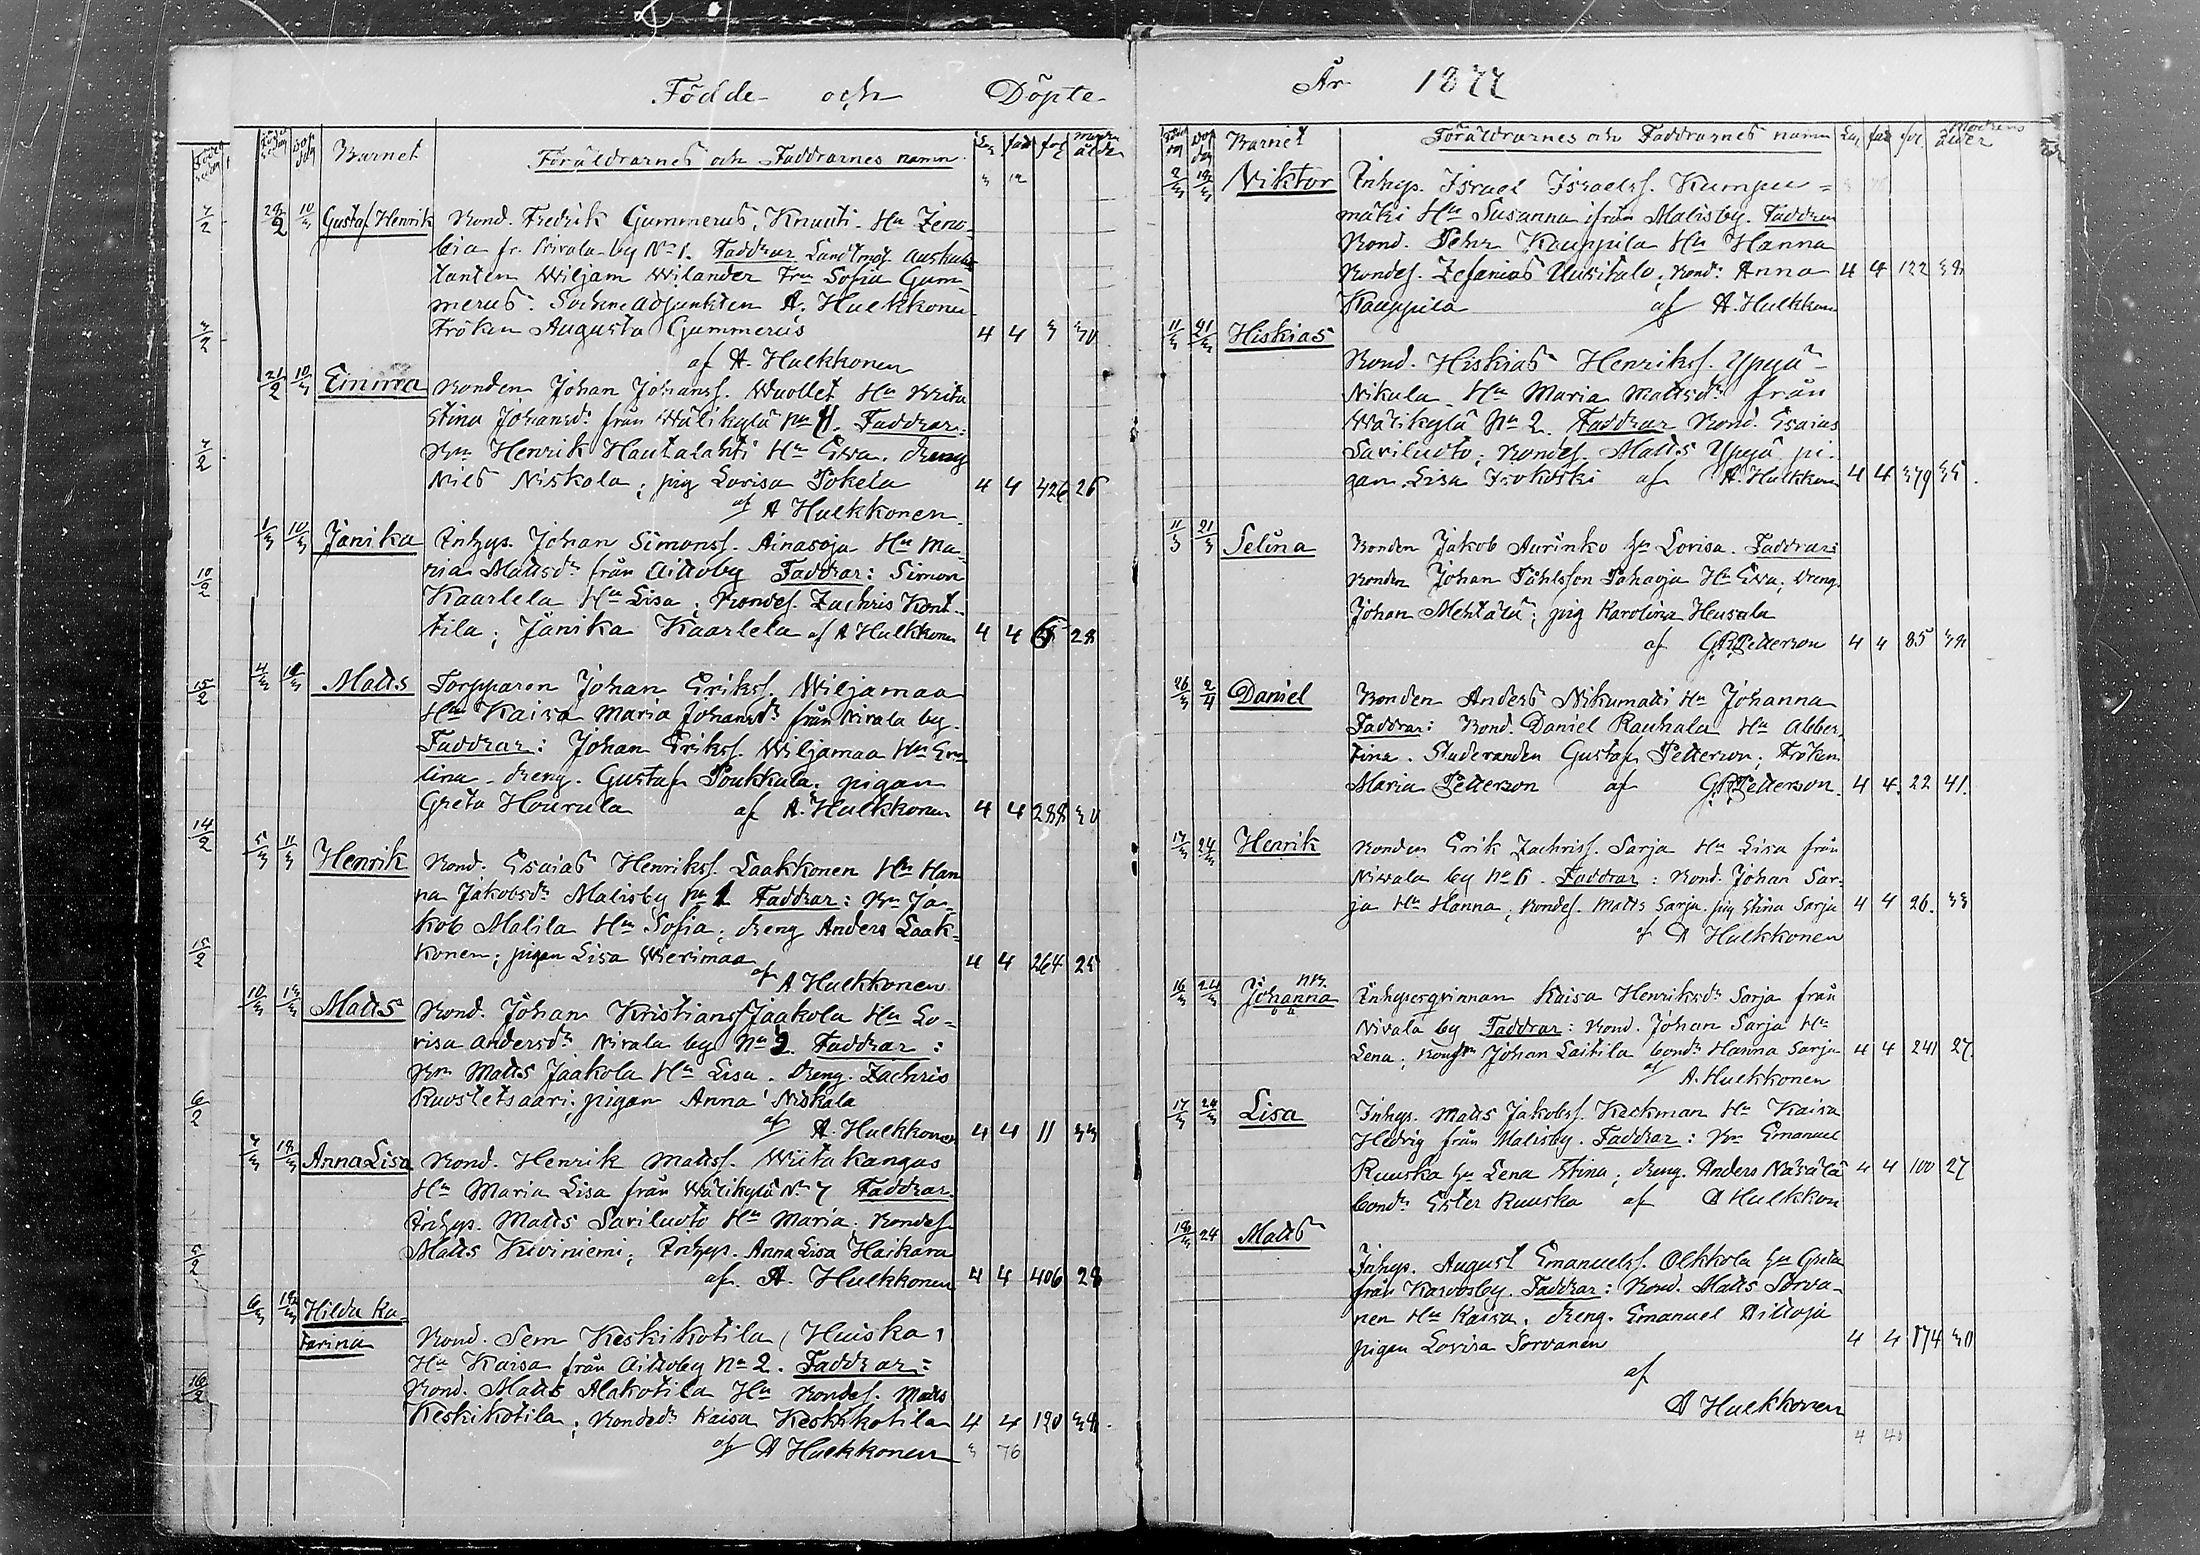 Födde och Döpte
Barnet Föräldrarnes och Faddrarnes namn
Gustaf Henrik Bond. Fredrik Gummerus, Knuuti. Hu Zeno-
bia fr. Nivala by No 1. Faddrar Landtmät. auskul-
tanten Wiljam Wilander Fru Sofia Gum-
merus. Sockne adjunkten A. Hulkkonen
Fröken Augusta Gummerus 4 4 3 30
af A. Hulkkonen
21/2 10/3 Emma Bonden Johan Johanss. Wuollet Hu Brita
Stina Johansdr från Wälikylä No 11. Faddrar:
Bn Henrik Hautalahti Hu Ewa. dreng
Nils Niskala; pig Lovisa Pokela 4 4 426 26
af A Hulkkonen
1/3 10/3 Janika Inhys. Johan Simonss. Ainasoja Hu Ma-
ria Mattsdr från Aittoby Faddrar: Simon
Kaarlela Hu Lisa; Bondes. Zachris Kont-
tila; Janika Kaarlela af A Hulkkonen 4 4 28
Matts Torpparen Johan Erikss. Wiljamaa
Hu Kaisa Maria Johansdr från Nivala by.
Faddrar: Johan Erikss. Wiljamaa Hu Eve-
lina. dreng. Gustaf Poukkala. pigan
Greta Hourula af A. Hulkkonen 4 4 288 30
5/3 11/3 Henrik Bond. Esaias Henrikss. Laakkonen Hu Han
na Jakobsdr Malisby No 1 Faddrar: Bn Ja-
kob Malila Hu Sofia; dreng Anders Laak-
konen; pigan Lisa Wierimaa 4 4 264 25
af A Hulkkonen
Matts Bond. Johan Kristianss Jaakola Hu Lo-
visa Andersdr Nivala by No 2. Faddrar:
Bn Matts Jaakola Hu Lisa. dreng. Zachris
Ruostetsaari; pigan Anna Niskala
af A. Hulkkonen 4 4 11 33
Anna Lisa Bond. Henrik Matss. Wiitakangas
Hu Maria Lisa från Wälikylä No 7 Faddrar.
Inhys. Matts Sariluoto Hu Maria. Bondes
Matts Kiviniemi; Inhys. Anna Lisa Haikara
af. A. Hulkkonen 4 4 406 28
Hilda Ka-
tarina Bond. Sem Keskikotila (Huiska)
Hu Kaisa från Aittoby No 2. Faddrar:
Bond. Matts Alakotila Hu Bondes. Matts
Keskikotila; Bondedr Kaisa Keskikotila 4 4 120 38
af A Hulkkonen 3 76
År 1877
Barnet Föräldrarnes och Faddrarnes namn Moderns ålder
Viktor Inhys. Israel Israelss. Kumpu-
mäki Hu Susanna ifrån Malisby. Faddrar
Bond. Pehr Kauppila Hu Hanna
Bondes. Zefanias Uusitalo; Bond: Anna 4 4 122 38
Kauppila af A. Hulkkonen
11/3 21/3 Hiskias
Bond. Hiskias Henrikss. Ypyä-
Nikula Hu Maria Mattsdr från
Wälikylä No 2. Faddrar Bond. Esaias
Sariluoto; Bondes. Matts Ypyä pi-
gan. Lisa Isokoski af A. Hulkkonen 4 4 379 35
11/3 21/3 Selina Bonden Jakob Aurinko Hu Lovisa. Faddrar:
Bonden Johan Påhlsson Pahaoja Hu Eva; Dreng.
Johan Mehtälä; pig Karolina Heusala
af G.R.Petterson 4 4 85 38
26/3 2/4 Daniel Bonden Anders Nikumatti Hu Johanna
Faddrar: Bond. Daniel Rauhala Hu Alber-
tina. Studeranden Gustaf Petterson; Fröken
Maria Petterson af G.R.Petterson. 4 4. 22 41.
17/3 24/3 Henrik Bonden Erik Zachriss. Sarja Hu Lisa från
Nivala by No 6. Faddrar: Bond. Johan Sar-
ja Hu Hanna, Bondes. Matts Sarja. pig Stina Sarja 4 4 26. 33
af A Hulkkonen
16/3 24/3 Johanna Inhysesqvinnan Kaisa Henriksdr Sarja från
o ä
Nivala by Faddrar: Bond. Johan Sarja Hu
Lena; Johan Laitila bondr Hanna Sarja 4 4 241 27.
af A. Hulkkonen
17/3 24/3 Lisa Inhys. Matts Jakobss. Keckman Hu Kaisa
Hedvig från Malisby. Faddrar: Bn Emanuel
Ruuska Hu Lena Stina; dreng. Anders Näsälä 4 4 100 27
bondr Ester Ruuska af A Hulkkon
18/3 24 Matts
Inhys. August Emanuelss. Olkkola Hu Greta
från Karvosby. Faddrar: Bond. Matts Sorva-
nen Hu Kaisa. dreng. Emanuel Aittoja
pigan Lovisa Sorvanen 4 4 174 30
af
A Hulkkonen
4 40